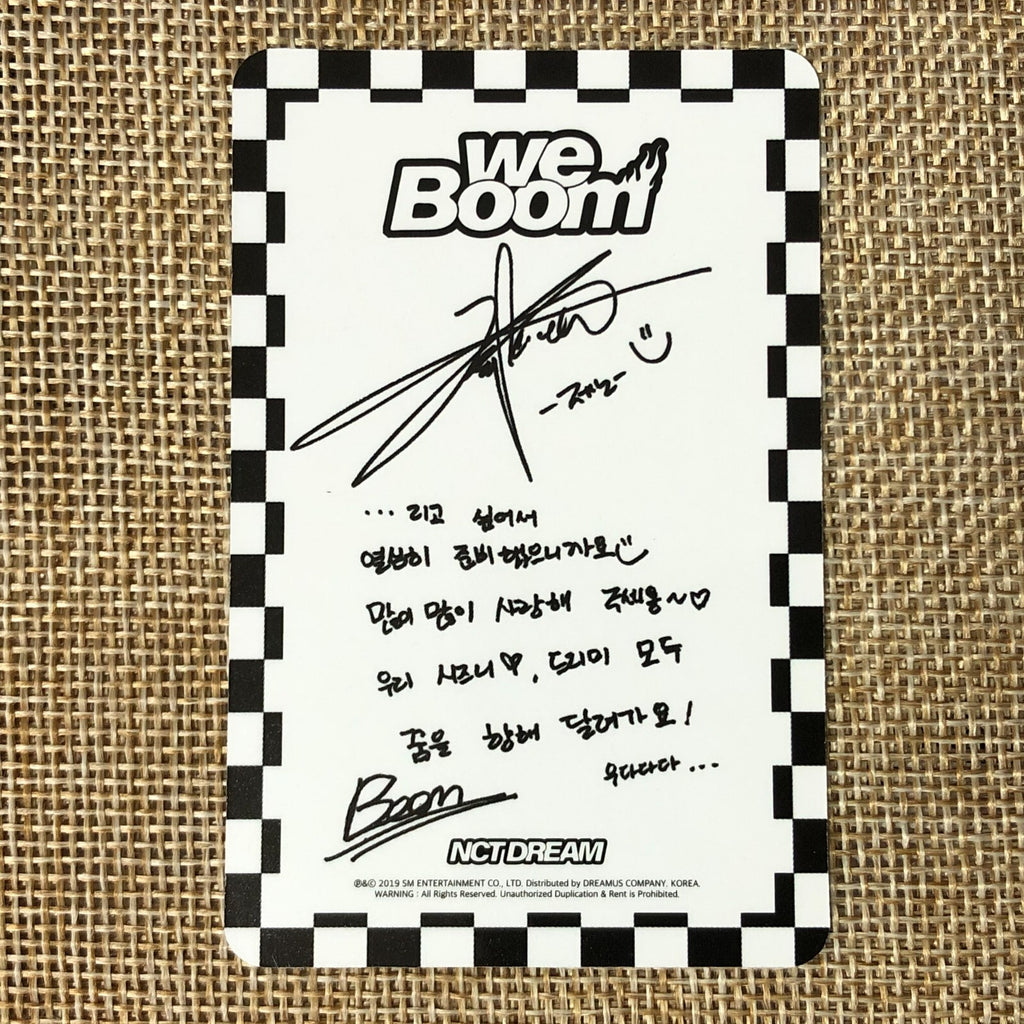 We
Boom
-제노-
...리고 싶어서
열심히 준비했으니까요
많이 많이 사랑해 주세용~♡
우리 시즈니♡, 드리미 모두
꿈을 향해 달려가요!
우다다다...
Boom
NCT DREAM
℗&© 2019 SM ENTERTAINMENT CO., LTD. Distributed by DREAMUS COMPANY. KOREA.
WARNING : All Rights Reserved. Unauthorized Duplication & Rent is Prohibited.